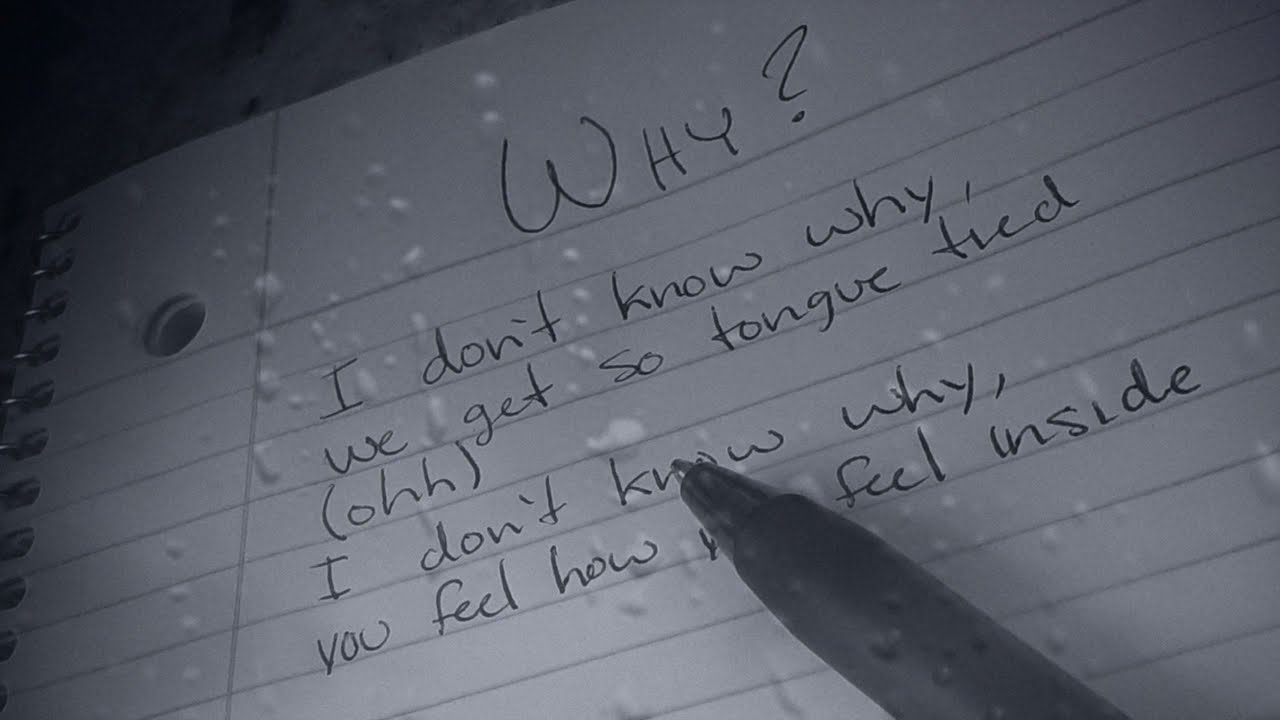 WHY?
I don't know why,
we get so tongue tied
(ohh)
I don't know why,
you feel how feel inside